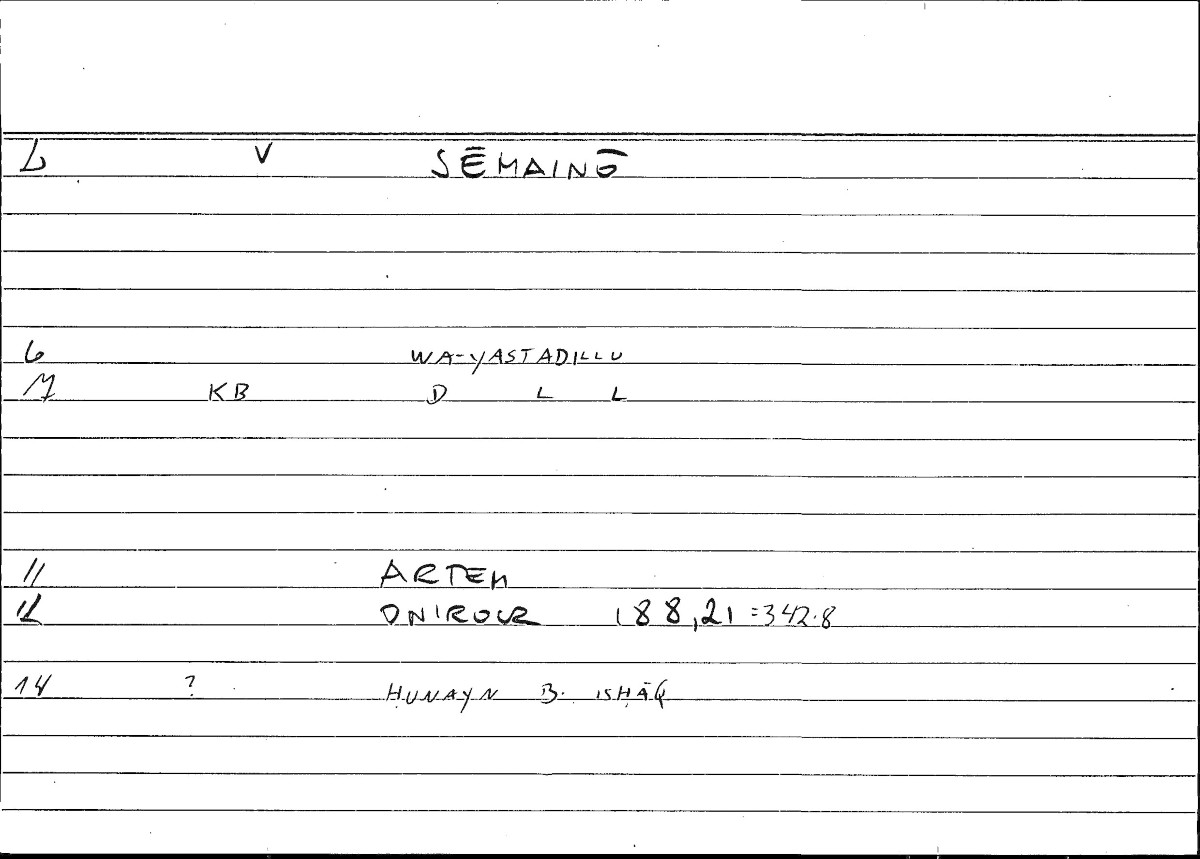 V SĒMAINŌ
6 WA-YASTADILLU
7 KB D L L
11 ARTEM
12 ONIROCR 188,21 =342.8
14 ? ḤUNAYN B. ISḤĀQ